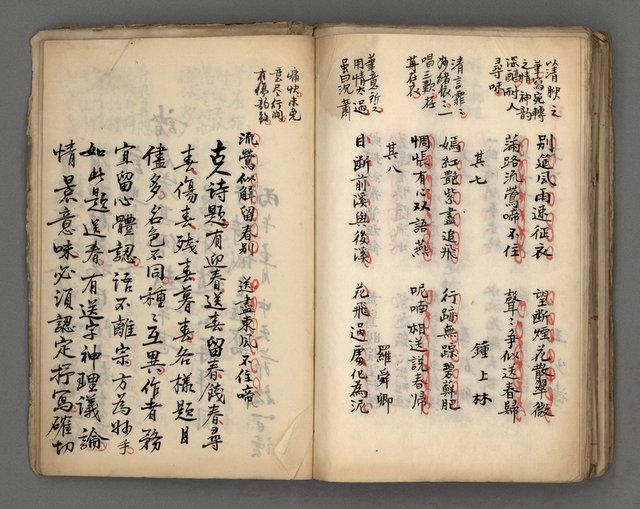 以清軟之
筆寫宛轉
之情神韵
深醞耐人
尋味
別筵風雨速征衣　望斷煙花散翠微
滿路流鶯啼不住　聲〻爭似送春歸
其七　鍾上林
清言霏〻
海緒依〻一
唱三歎存
嫣紅艷紫盡追飛　行跡無踪翠蘚肥
惆悵有心双語燕　呢喃相送說春帰
其八　羅舜卿
筆意所之
用情太過
虽曰沉肅
目斷前溪與後溪　花飛過處化為泥
痛快未免
意尽行间
有傷韵致
流鶯似解留春別　送盡東風不住啼
夫詩題有迎春送春留春餞春尋
春傷春殘春暮春各樣題目
儘多名色不同種〻互異作者務
宜留心體認語不離宗方為妙手
如此題送春有送字神理議論
情景意味必須認定抒寫確切